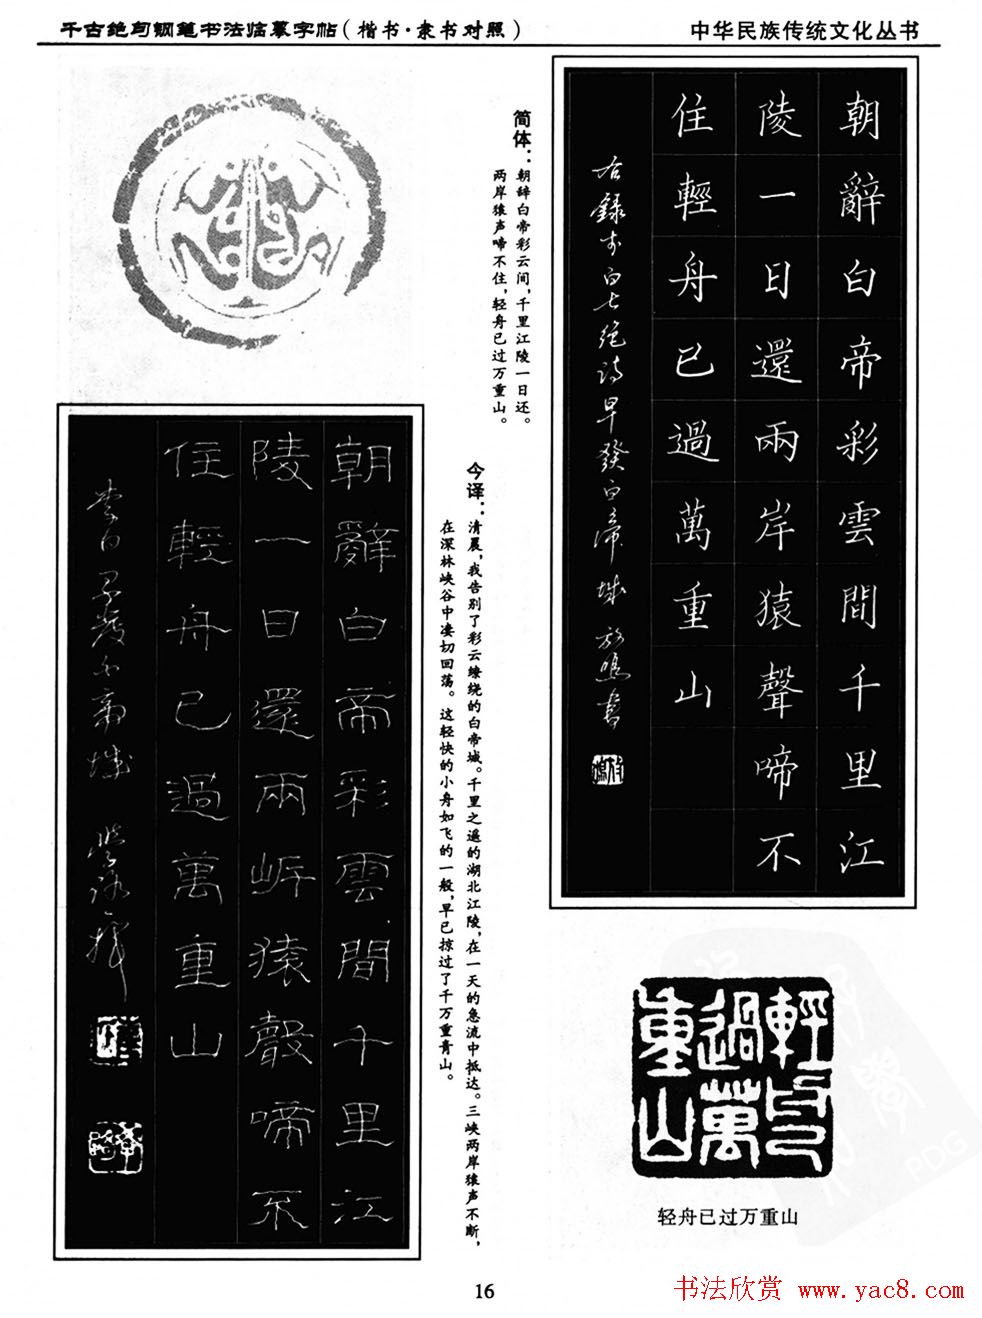 千古绝句钢笔书法临摹字帖(楷书·隶书对照)
中华民族传统文化丛书
朝辭白帝彩雲間千里江
陵一日還兩岸猿聲啼不
住輕舟已過萬重山
右錄李白七绝诗早發白帝城 放鳴書
简体：朝辞白帝彩云间，千里江陵一日还。
两岸猿声啼不住，轻舟已过万重山。
今译：清晨，我告别了彩云缭绕的白帝城。千里之遥的湖北江陵，在一天的急流中抵达。三峡两岸猿声不断，
在深林峡谷中凄切回荡。这轻快的小舟如飞的一般，早已掠过了千万重青山。
朝辭白帝彩雲間千里江
陵一日還兩岸猿聲啼不
住輕舟已過萬重山
李白早發白帝城
輕舟已
過萬
重山
轻舟已过万重山
PDG
16
书法欣赏 www.yac8.com